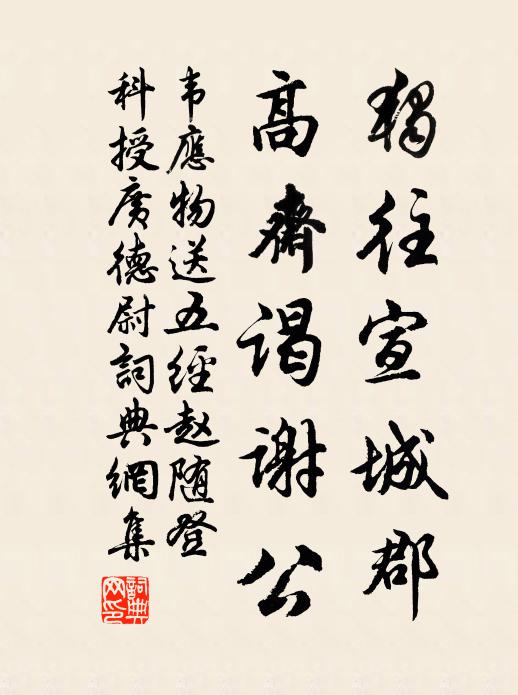 獨往宣城郡
高齋謁謝公
韦應物送五經赵随登
科授廣德尉詞典網集
詞典網印